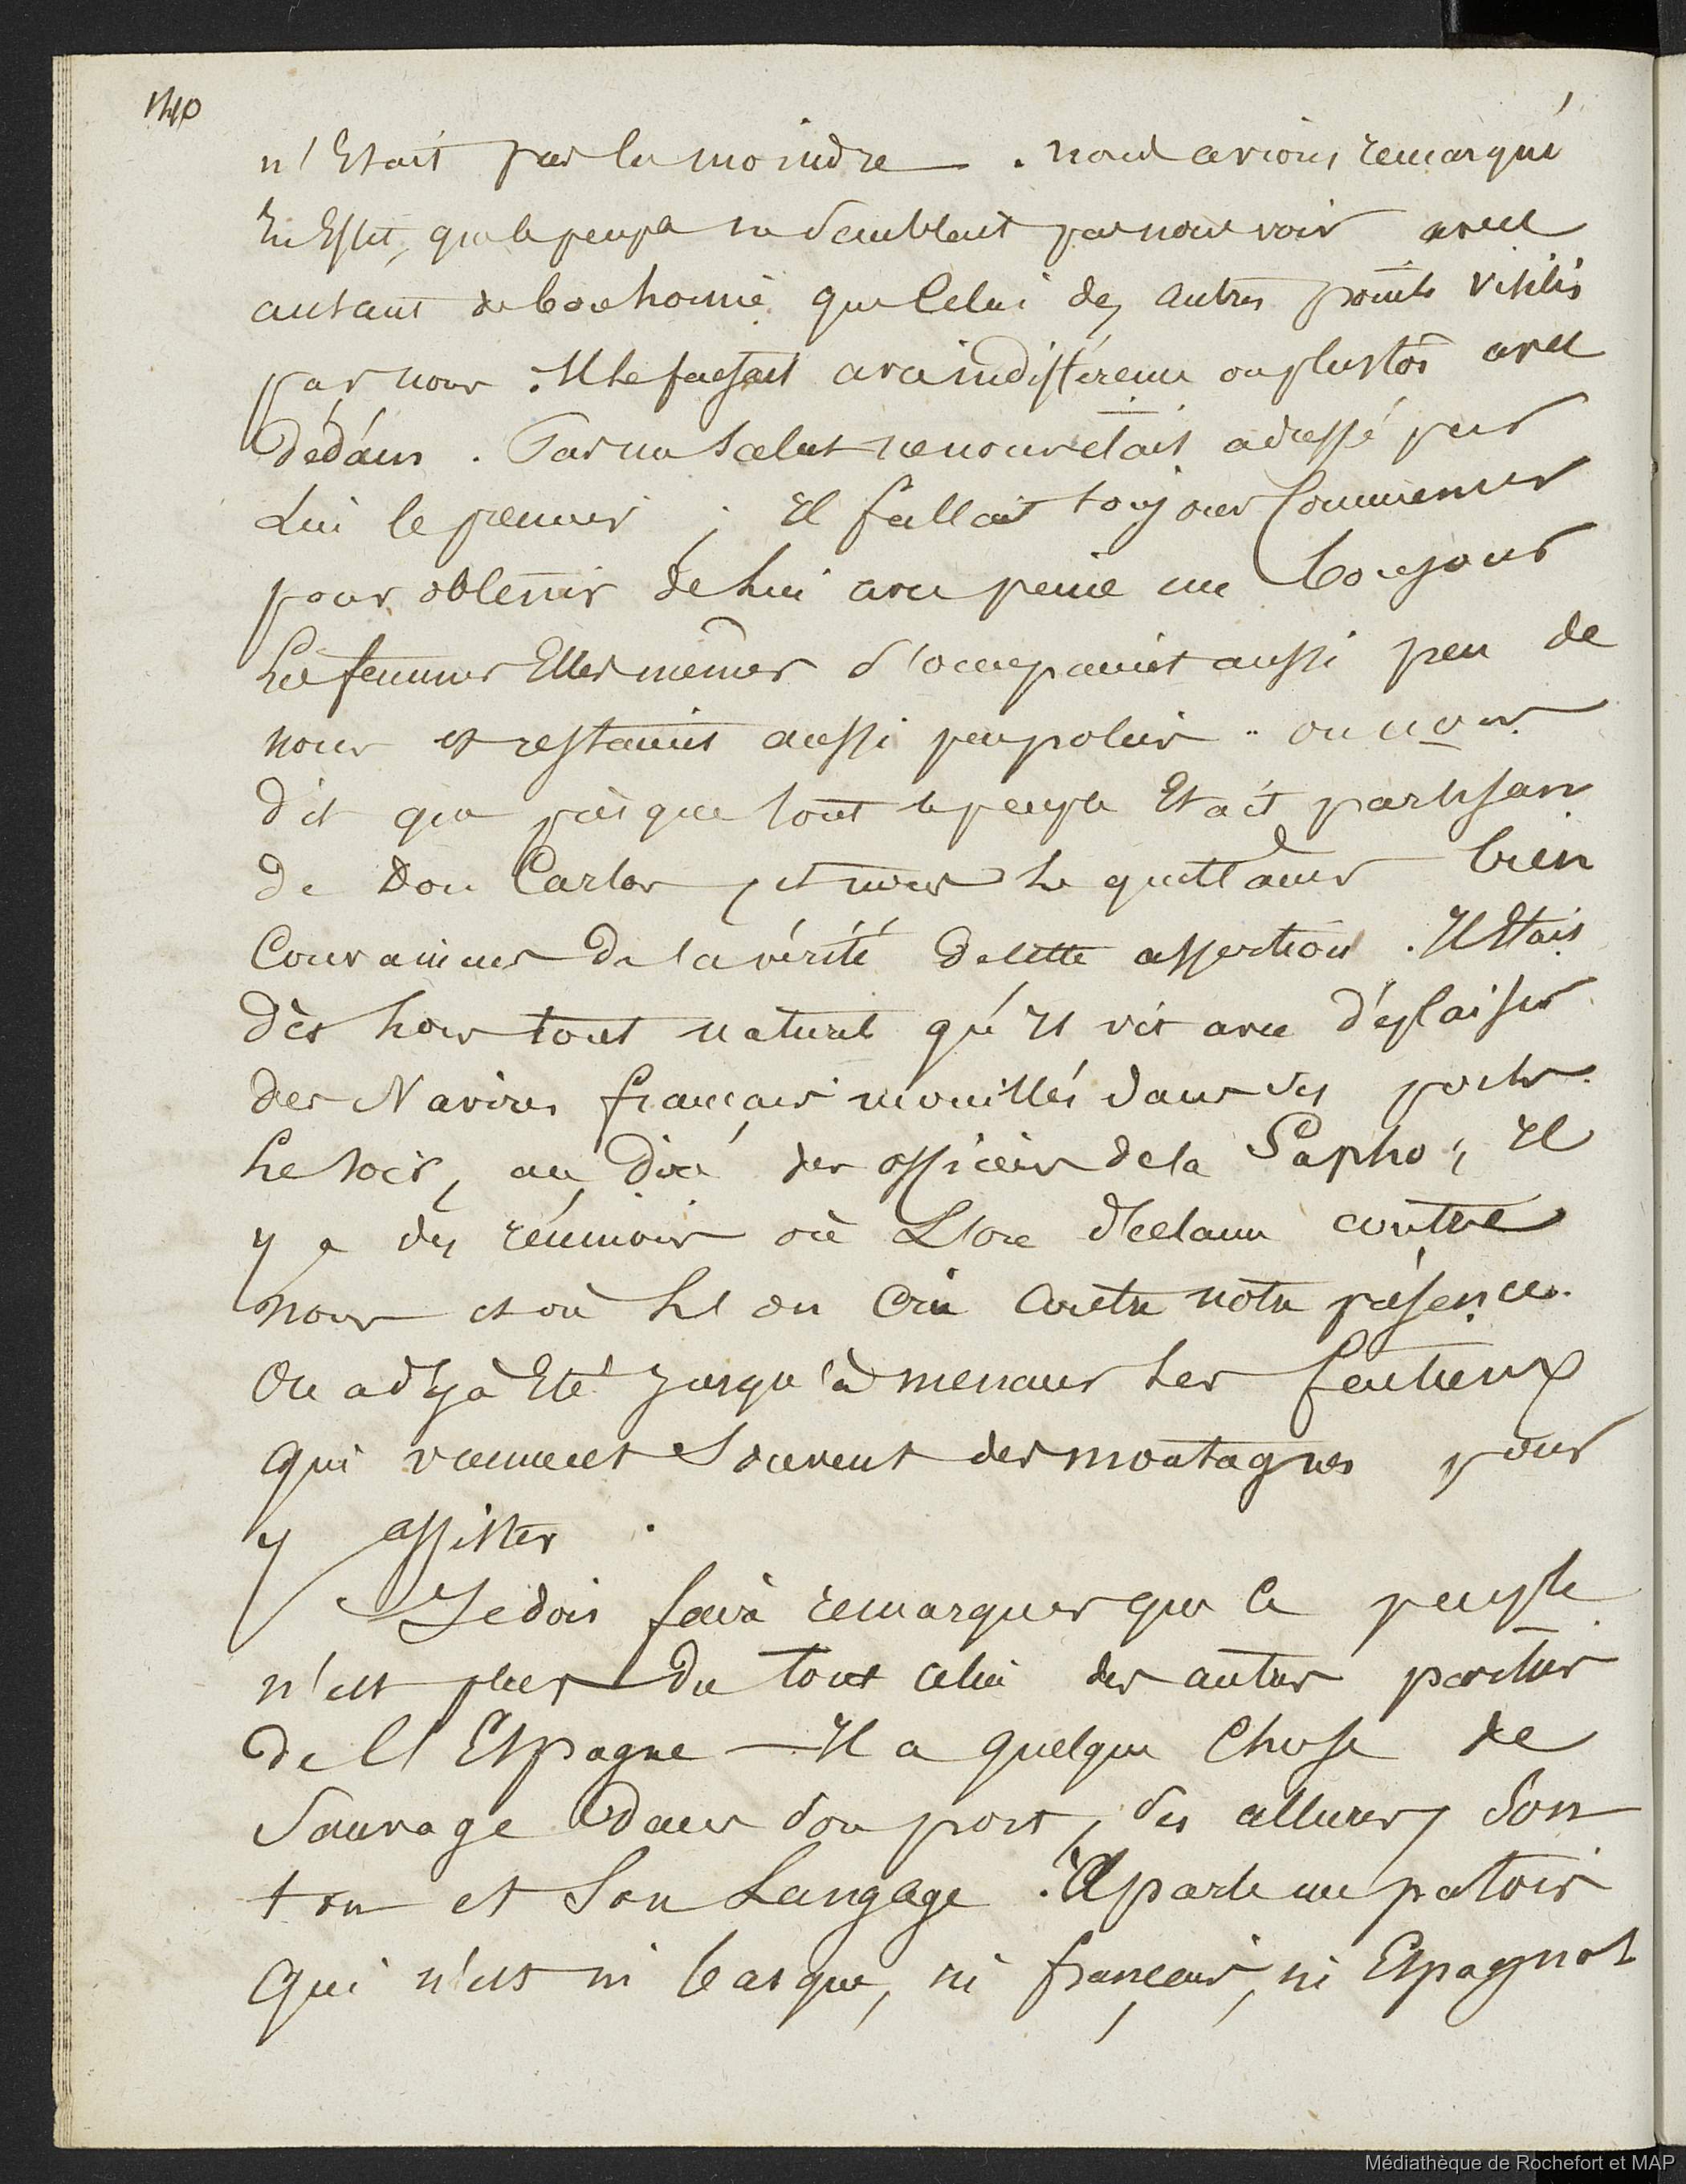 140
n'Etait pas la moindre . nous avions remarqué
En Effet, que le peuple ne semblait pas nous voir avec
autant de bonhomie que Celui des autres points visités
par nous . Il le faisait avec indifférence ou plustôt avec
dédain . Pas un salut ne nous était adressé par
Lui le premier ; Il fallait toujours Commencer
pour obtenir de lui avec peine un bonjour
Les femmes Elles mêmes s'occupaient aussi peu de
nous et restaient aussi peu polies . on nous
dit que presque tout le peuple Etait partisan
de Don Carlos , et nous le quittames bien
Convaincus de la vérité de cette assertion . Il Etait
dès lors tout naturel qu'il vit avec déplaisir
des Navires français mouillés dans ses ports .
Le soir, au dire des officiers de la Sapho , Il
y a des réunions où L'on déclame contre
nous et où L'on crie contre notre présence .
On a déjà Eté jusqu'à menacer les
qui viennent Souvent des montagnes pour
y assister .
Je dois faire remarquer que Ce peuple
n'est plus du tout celui des autres parties
de l'Espagne — Il a quelque Chose de
Sauvage dans son port, ses allures, Son
ton et Son Langage . Il parle un patois
Qui n'est ni basque, ni français, ni Espagnol
Médiathèque de Rochefort et MAP